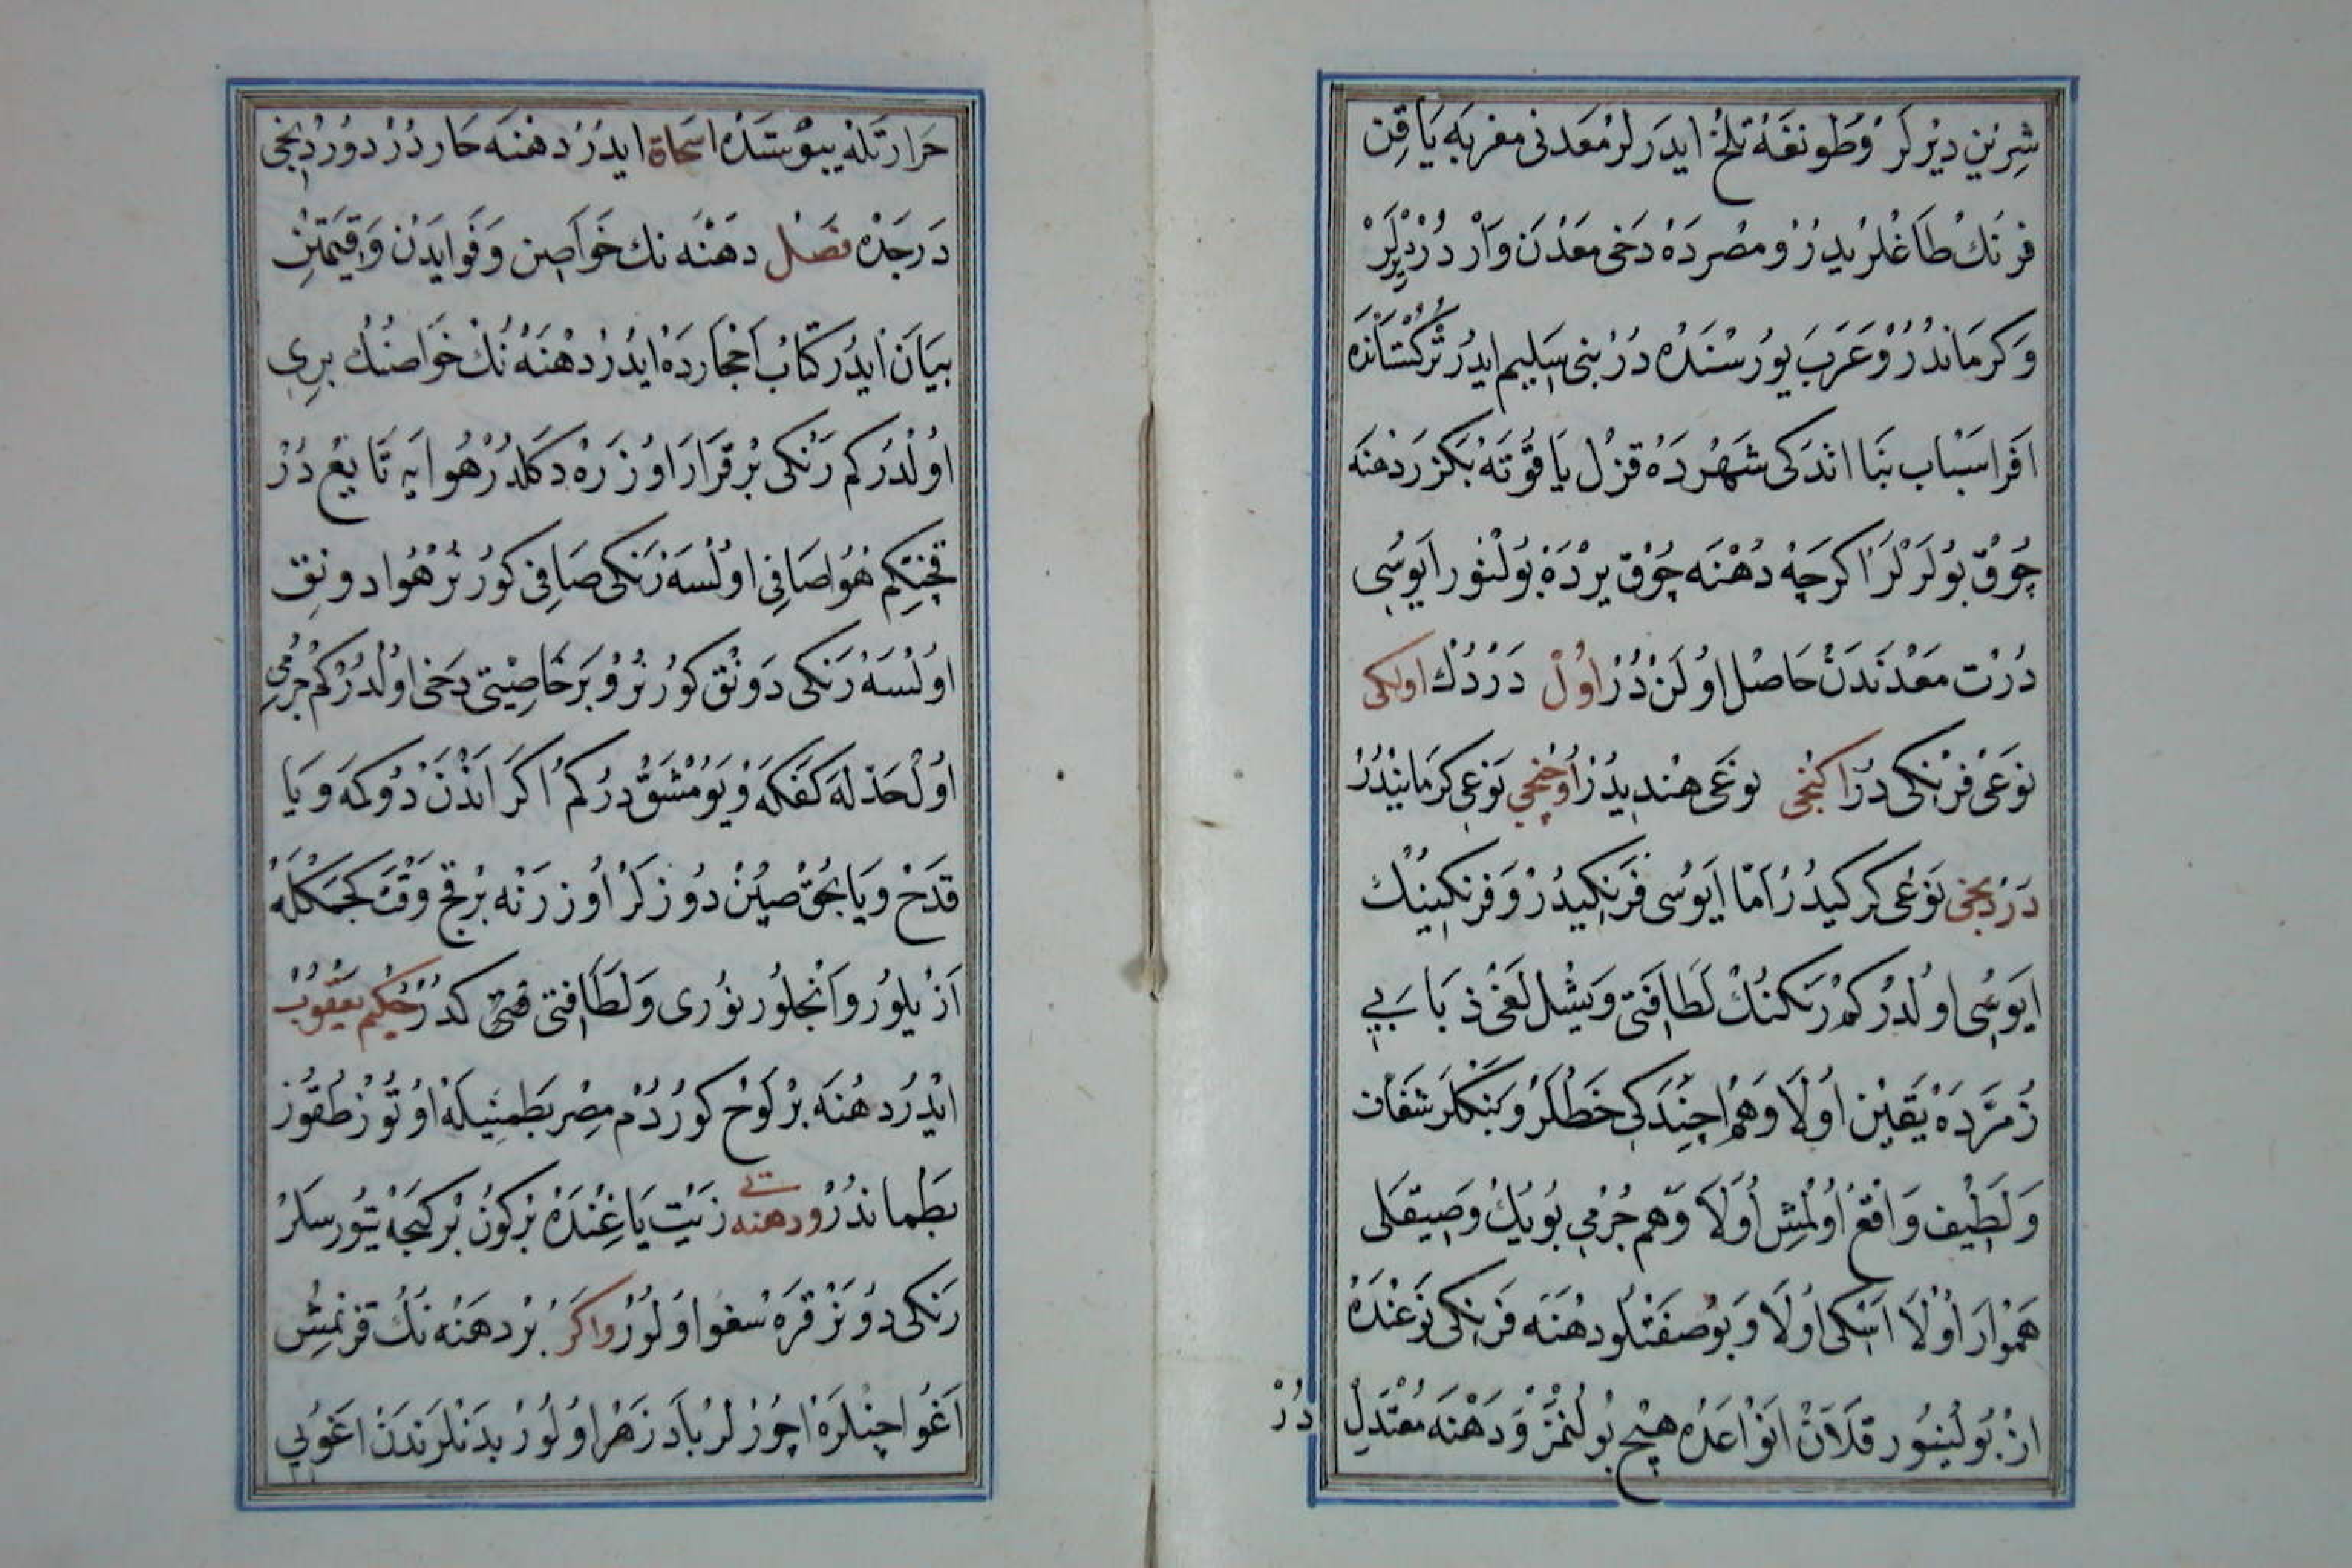 شِرِيْن دِيْرلَر وُطُونغَنَه تَلْخ ايدَرلَر مَعَدنى مغربَه يَاقِن
فرنك طَاغلريدِر وُ مصرده دَخى مَعدَن وَار دُر ديرلَر
وَكرمَاندُر وْ عَرَب يورسنده دُر بنى سَليم ايدُر تُركُستَانده
اَفراسَيَاب بَنَا اتدكى شَهرده قزل يَاقُوتَه بَكزر دهنه
چُوق بُولَرلَر اكرچَه دهْنَه چُوق يرده بُولنور اَيوسى
دُرت مَعدندَن حَاصل اولَن دُر اوُل دَردُك اولكى
نَوعى فرنكى در اكنجى نوعى هندِيدُر اُوچنجى نَوعى كرمَانيدُر
دَردنجى نَوعى كركيدُر اَمَّا اَيوُسى فَرنكيدُر وَفرنكينك
ايَوسى اولدُر كم رَنكنُك لَطَافَتى وَيشللغى ذبَابيِ
زُمرده يَقين اولَا وَهم اچندَكى خَطلَر وَبَنكلَر شَفاف
وَلَطيف وَاقع اولمش اولَا وَهم جُرمى بُويك وَصيقلى
هَموار اوُلَا اَسكى اولَا وَبوصفتلو دهنَه فَرنكى نوعنده
از بُولينور قلَان انَواعده هيچ بُولنمز وَدهنه معتدل
دُرْ
حَرَارتله يبوستده اسحاق ايدَر دهنَه حَار دُر دوردنجى
دَرجَده فصل دهنَه نك خَواصِن وَفَوايدن وَقيمتن
بيَان ايدر كتاب اَحجارده ايدُر دهنَه نُك خَواصنُك برى
اولدُر كم رَنكى بَرقرار اوزره دكلدُر هوايه تَابع دُر
قچنكم هَوا صَافى اولسه رَنكى صَافى كورنُر هوا دونق
اولسه رَنكى دَونق كورنُر وُ بَر خاصيتى دَخى اولدُر كم جرمى
اول حَدله كَفكه وَيومشق در كم اكر اندن دُوكمه وَيَا
قدَح وَيَا بچق صيْن دوزكر اوزرنه برقچ وَقت كچمكله
اَزيلور وَانجلور نوُرى وَلطَافتى كيدر حكيم يعقوب
ايدُر دهنَه بر لَوح كوردُم مصر بطمنيله اوتوز طقوز
بطماندُر ودهنه زَيت ياغنده بر كون بر كيجه يتورسَلر
رَنكى دونر قره سغو اولُور واكَر بر دهنَه نُك قرنمش
اَغو اچنلره اچورلر بَاد زَهر اولُور بدنلرندن اغويى